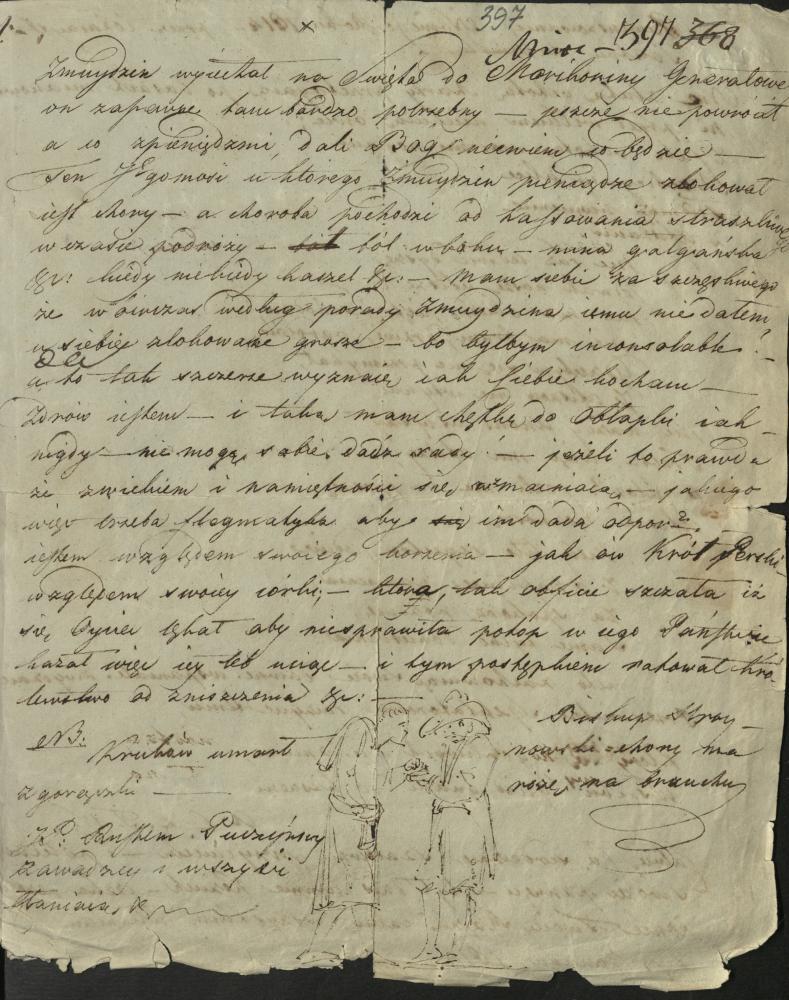 397
397 368
Zmuydzin wyiechał na Swięta do Morikoniny Generałowe
on zapewne tam bardzo potrzebny — jeszcze nie powrócił
a co zpieniędzmi, dali Bóg niewiem co będzie —
Ten JEgomość u którego Zmuydzin pieniądze zlokował
iest chory — a choroba pochodzi od kassowania straszliwego
w czasie podróży — ból w boku — mina gałgańska
&c: kiedy niekiedy kaszel &c: — mam siebie za szczęśliwego
że wówczas według porady Zmuydzina iemu nie dałem
u siebie zlokowane grosze — bo byłbym inconsolable! —
a to tak szczerze wyznaię iak siebie kocham —
Zdrów iestem — i taką mam chętkę do obłapki iak
nigdy — nie mogę sobie dadź rady! — jeżeli to prawda
że zwiekiem i namiętności się wzmacniaią — jakiego
więc trzeba flegmatyka aby im dadź odpor?
iestem względem swoiego korzenia — jak ów Król Perski
względem swoiey córki, — która, tak obficie szczała iż
się Oyciec lękał aby niesprawiła potop w iego Państwie
kazał więc iey łeb uciąć — i tym postępkiem ratował Kró-
lewstwo od zniszczenia &c: —
NB:
Kruków umarł
z gorączki —
Biskup Stroy-
nowski chory ma
różę, na brzuchu
JP. Rustem Puczyński
Zawadzcy i wszyści
kłaniaią &